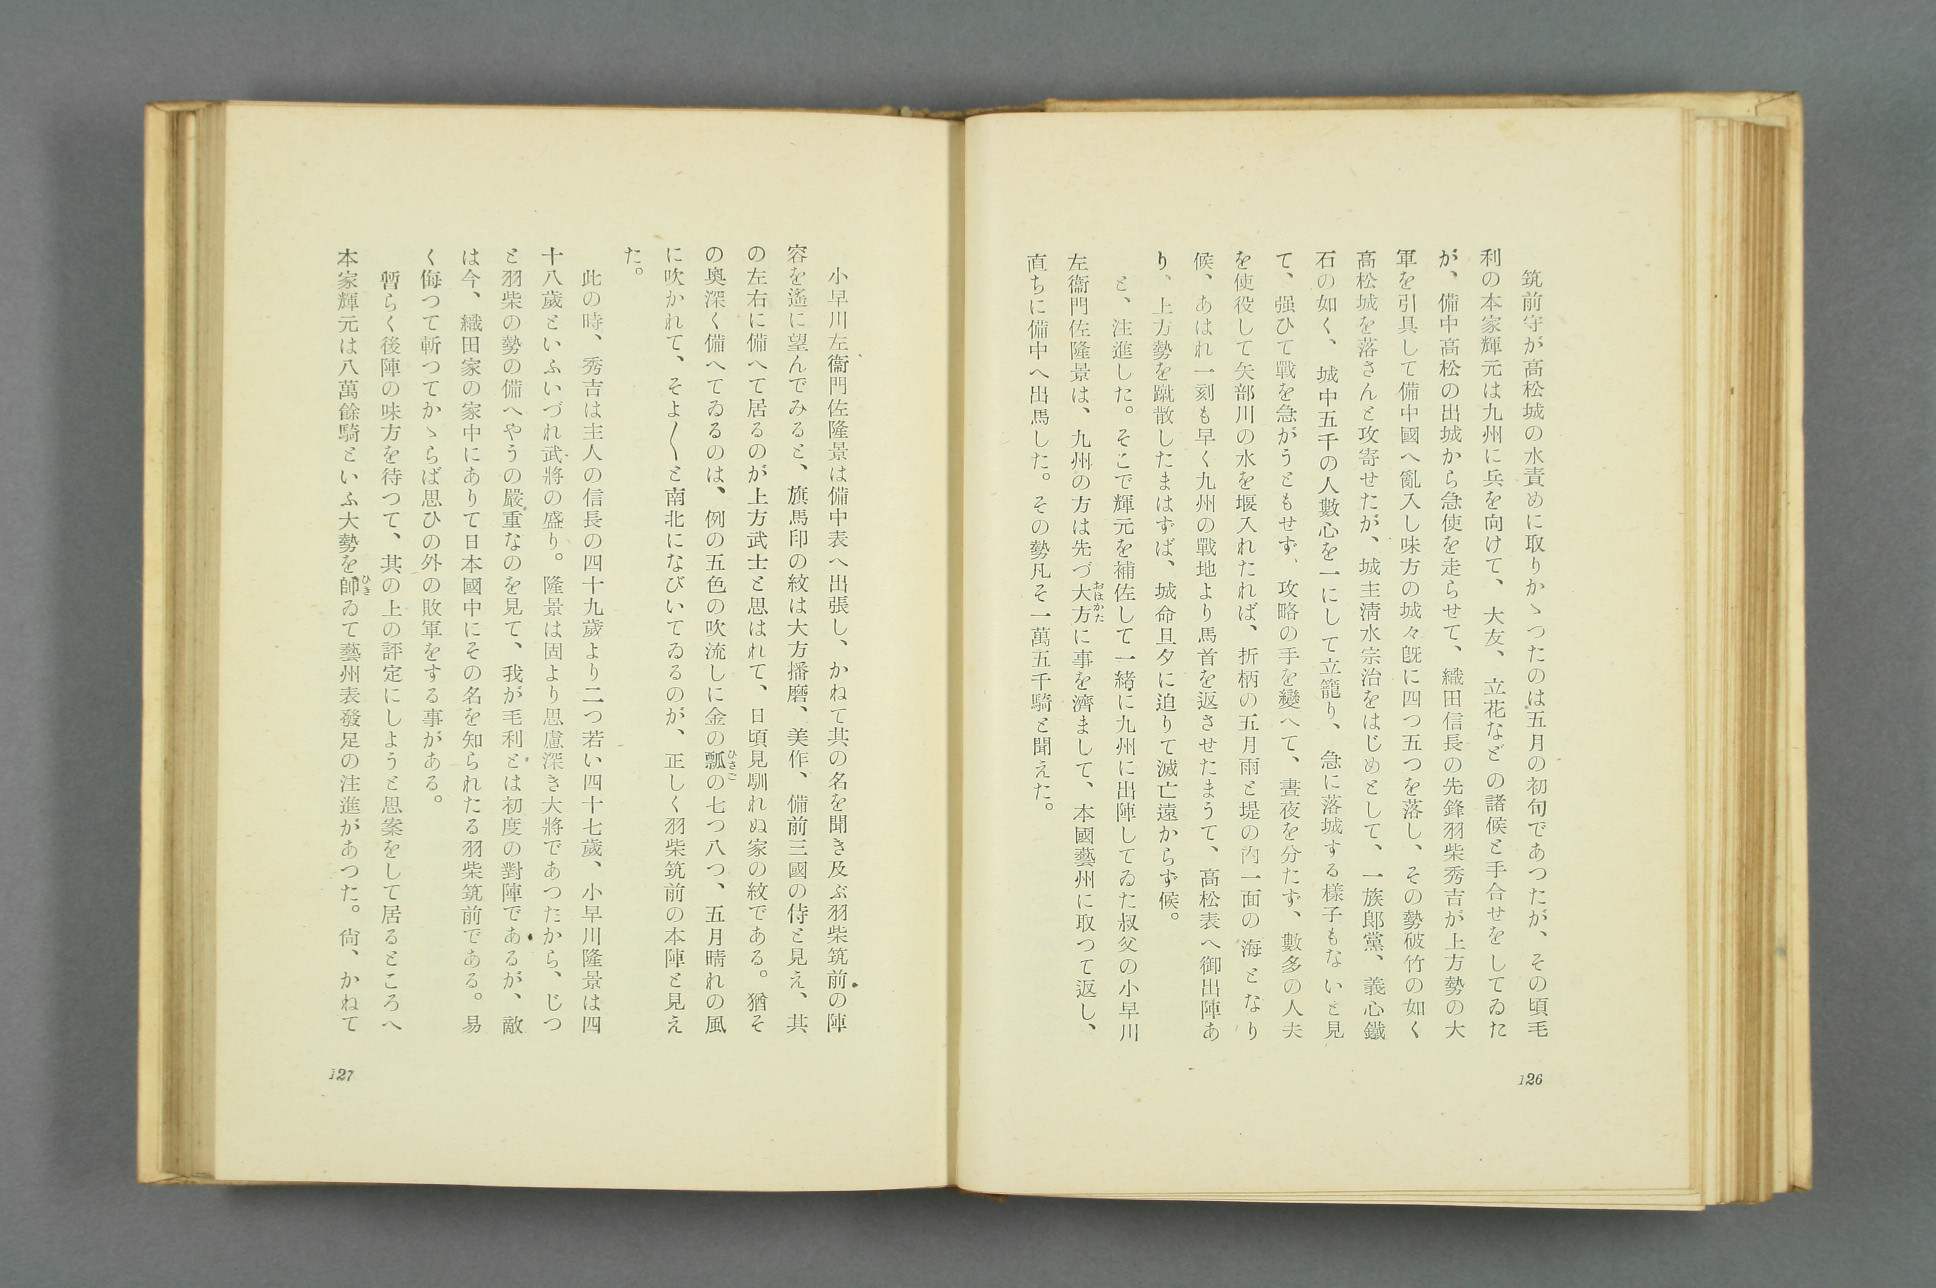 筑前守が高松城の水責めに取りかゝつたのは五月の初旬であつたが、その頃毛
利の本家輝元は九州に兵を向けて、大友、立花などの諸候と手合せをしてゐた
が、備中高松の出城から急使を走らせて、織田信長の先鋒羽柴秀吉が上方勢の大
軍を引具して備中國へ亂入し味方の城々既に四つ五つを落し、その勢破竹の如く
高松城を落さんと攻寄せたが、城主淸水宗治をはじめとして、一族郎黨、義心鐵
石の如く、城中五千の人數心を一にして立籠り、急に落城する樣子もないと見
て、强ひて戰を急がうともせず、攻略の手を變へて、晝夜を分たず、數多の人夫
を使役して矢部川の水を堰入れたれば、折柄の五月雨と堤の內一面の海となり
候、あはれ一刻も早く九州の戰地より馬首を返させたまうて、高松表へ御出陣あ
り、上方勢を蹴散したまはずば、城命旦夕に迫りて滅亡遠からず候。
と、注進した。そこで輝元を補佐して一緖に九州に出陣してゐた叔父の小早川
左衞門佐隆景は、九州の方は先づ大方に事を濟まして、本國藝州に取つて返し、
おほかた
直ちに備中へ出馬した。その勢凡そ一萬五千騎と聞えた。
126
小早川左衞門佐隆景は備中表へ出張し、かねて其の名を聞き及ぶ羽柴筑前の陣
容を遙に望んでみると、旗馬印の紋は大方播磨、美作、備前三國の侍と見え、其
の左右に備へて居るのが上方武士と思はれて、日頃見馴れぬ家の紋である。猶そ
の奧深く備へてゐるのは、例の五色の吹流しに金の瓢の七つ八つ、五月晴れの風
ひさご
に吹かれて、そよ〳〵と南北になびいてゐるのが、正しく羽柴筑前の本陣と見え
た。
此の時、秀吉は主人の信長の四十九歲より二つ若い四十七歲、小早川隆景は四
十八歲といふいづれ武將の盛り。隆景は固より思慮深き大將であつたから、じつ
と羽柴の勢の備へやうの嚴重なのを見て、我が毛利とは初度の對陣であるが、敵
は今、織田家の家中にありて日本國中にその名を知られたる羽柴筑前である。易
く侮つて斬つてかゝらば思ひの外の敗軍をする事がある。
暫らく後陣の味方を待つて、其の上の評定にしようと思案をして居るところへ
本家輝元は八萬餘騎といふ大勢を師ゐて藝州表發足の注進があつた。尙、かねて
ひき
127